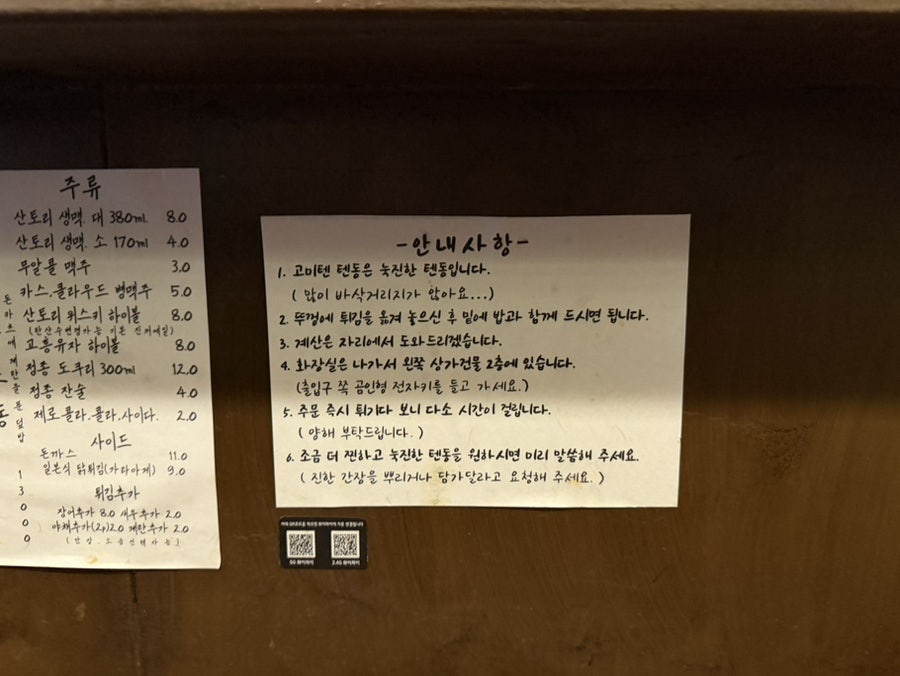 주류
산토리 생맥. 대 380ml. 8.0
산토리 생맥. 소 170ml 4.0
무알콜 맥주 3.0
카스.클라우드 병맥주 5.0
산토리 위스키 하이볼 8.0
고흥유자 하이볼 8.0
정종 도쿠리 300ml 12.0
정종 잔술 4.0
제로콜라.콜라.사이다. 2.0
사이드
돈까스 11.0
일본식 닭튀김(가라아게) 9.0
튀김추가
장어추가 8.0 새우추가 2.0
야채추가(2p)2.0 계란추가 2.0
-안내사항-
1. 고미텐 텐동은 눅진한 텐동입니다.
( 많이 바삭거리지가 않아요...)
2. 뚜껑에 튀김을 옮겨 놓으신 후 밑에 밥과 함께 드시면 됩니다.
3. 계산은 자리에서 도와드리겠습니다.
4. 화장실은 나가서 왼쪽 상가건물 2층에 있습니다.
(출입구 쪽 곰인형 전자키를 들고 가세요.)
5. 주문 즉시 튀기다 보니 다소 시간이 걸립니다.
( 양해 부탁드립니다. )
6. 조금 더 찐하고 눅진한 텐동을 원하시면 미리 말씀해 주세요.
( 진한 간장을 뿌리거나 담가달라고 요청해 주세요. )
5G 와이파이
2.4G 와이파이